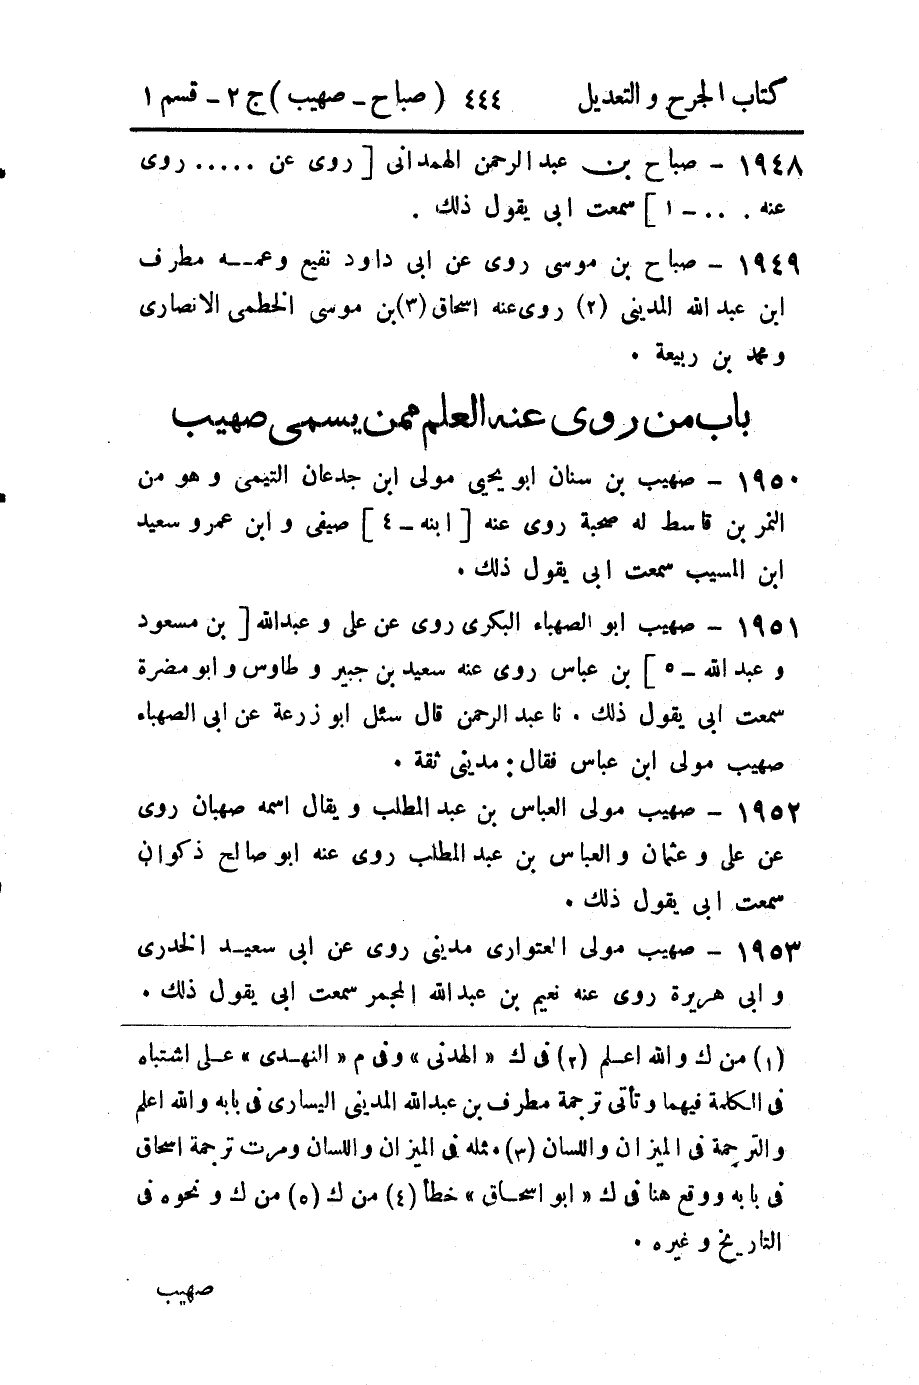 كتاب الجرح والتعديل ٤٤٤ (صباح - صهيب) ج ٢ - قسم ١
١٩٤٨ - صباح بن عبد الرحمن الهمداني [ روى عن ..... روى
عنه . .. - ١ ] سمعت ابى يقول ذلك .
١٩٤٩ - صباح بن موسى روى عن ابى داود نفيع وعمه مطرف
ابن عبد الله المدينى (٢) روى عنه اسحاق (٣) بن موسى الخطمى الانصارى
ومحمد بن ربيعة .
باب من روى عنه العلم ممن يسمى صهيب
١٩٥٠ - صهيب بن سنان ابو يحيى مولى ابن جدعان التيمى و هو من
النمر بن قاسط له صحبة روى عنه [ ابنه - ٤ ] صيفى و ابن عمر و سعيد
ابن المسيب سمعت ابى يقول ذلك .
١٩٥١ - صهيب ابو الصهباء البكرى روى عن على و عبد الله [ بن مسعود
و عبد الله - ٥ ] بن عباس روى عنه سعيد بن جبير و طاوس و ابو مضرة
سمعت ابى يقول ذلك . نا عبد الرحمن قال سئل ابو زرعة عن ابى الصهباء
صهيب مولى ابن عباس فقال : مدينى ثقة .
١٩٥٢ - صهيب مولى العباس بن عبد المطلب و يقال اسمه صهبان روى
عن على و عثمان و العباس بن عبد المطلب روى عنه ابو صالح ذكوان
سمعت ابى يقول ذلك .
١٩٥٣ - صهيب مولى العتوارى مدينى روى عن ابى سعيد الخدرى
و ابى هريرة روى عنه نعيم بن عبد الله المجمر سمعت ابى يقول ذلك .
(١) من ك و الله اعلم (٢) فى ك « الهدنى » وفى م « النهدى » على اشتباه
فى الكلمة فيهما و تأتى ترجمة مطرف بن عبد الله المدينى اليسارى فى بابه والله اعلم
والترجمة فى الميزان واللسان (٣) مثله فى الميزان واللسان ومرت ترجمة اسحاق
فى بابه ووقع هنا فى ك « ابو اسحاق » خطأ (٤) من ك (٥) من ك و نحوه فى
التاريخ و غيره .
صهيب